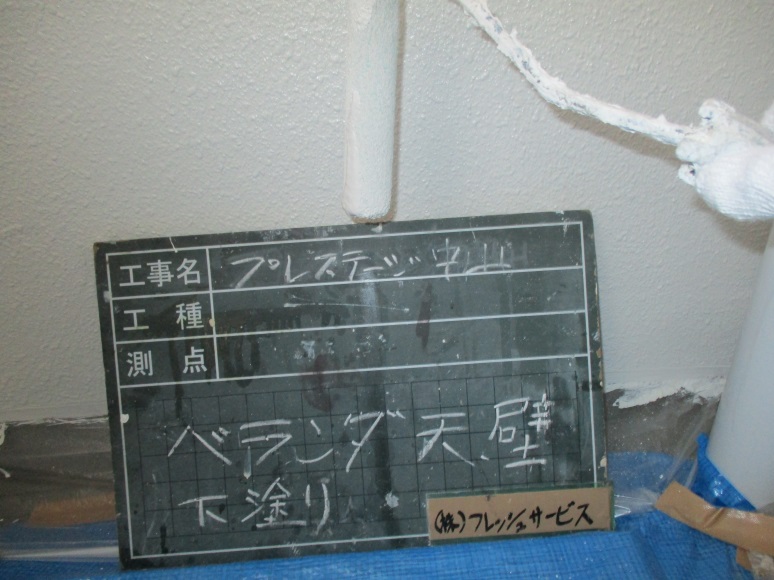 工事名 プレステージ中山
工種
測点
ベランダ天、壁
下塗り
(株)フレッシュサービス